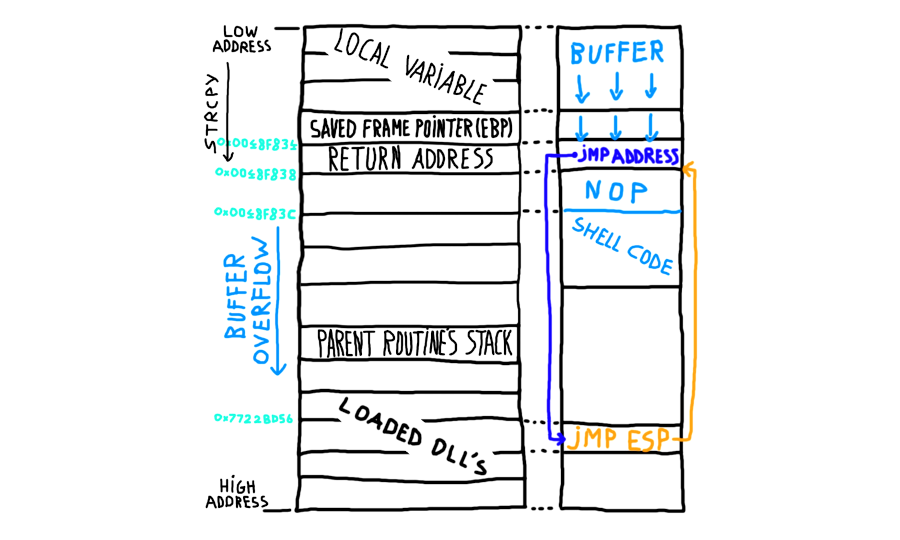 LOW
ADDRESS
STRCPY
0x0048F834
0x0048F838
0x0048F83C
BUFFER
OVERFLOW
0x7722BD56
HIGH
ADDRESS
LOCAL VARIABLE
SAVED FRAME POINTER(EBP)
RETURN ADDRESS
PARENT ROUTINE'S STACK
LOADED DLL'S
BUFFER
JMP ADDRESS
NOP
SHELL CODE
JMP ESP